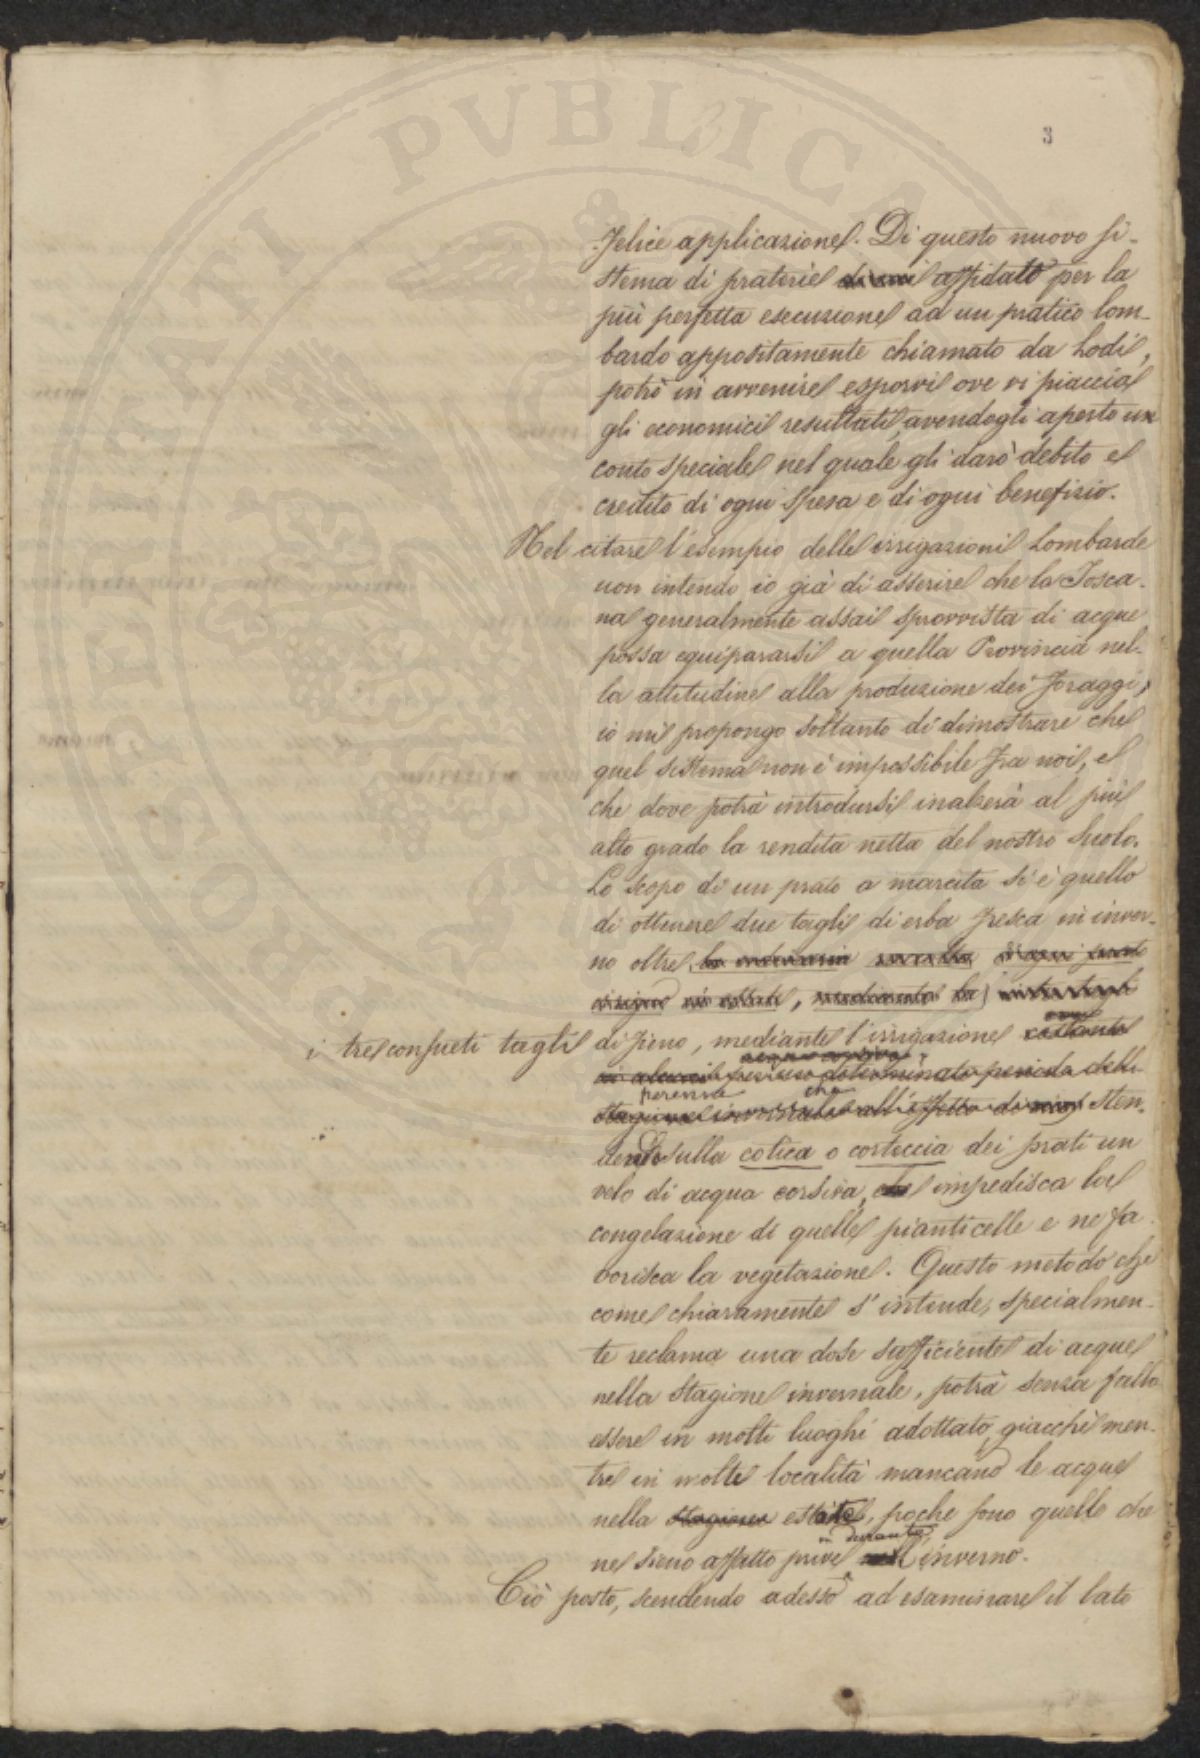 3
felice applicazione. Di questo nuovo si-
stema di praterie affidato per la
più perfetta esecuzione ad un pratico lom-
bardo appositamente chiamato da Lodi,
potrò in avvenire esporvi ove vi piaccia
gli economici resultati, avendogli aperto un
conto speciale nel quale gli darò debito e
credito di ogni spesa e di ogni benefizio.
Nel citare l'esempio delle irrigazioni Lombarde
non intendo io già di asserire che la Tosca-
na generalmente assai sprovvista di acque
possa equipararsi a quella Provincia nel-
la attitudine alla produzione dei foraggi,
io mi propongo soltanto di dimostrare che
quel sistema non è impossibile fra noi, e
che dove potrà introdursi inalzerà al più
alto grado la rendita netta del nostro suolo.
Lo scopo di un prato a marcita si è quello
di ottenere due tagli di erba fresca in inver-
no oltre la ordinaria raccolta di ogni
mediante la
i tre consueti tagli di fieno, mediante l'irrigazione costante
determinato periodo della
perenne che
stagione invernale all'effetto di sten-
dendo sulla cotica o corteccia dei prati un
velo di acqua corsiva, che impedisca la
congelazione di quelle pianticelle e ne fa-
vorisca la vegetazione. Questo metodo che
come chiaramente s'intende, specialmen-
te reclama una dose sufficiente di acque
nella stagione invernale, potrà senza fallo
essere in molti luoghi adottato, giacchè men-
tre in molte località mancano le acque
nella stagione estate, poche sono quelle che
in durante
ne sieno affatto prive l'inverno.
Ciò posto, scendendo adesso ad esaminare il lato
PVBLICAE